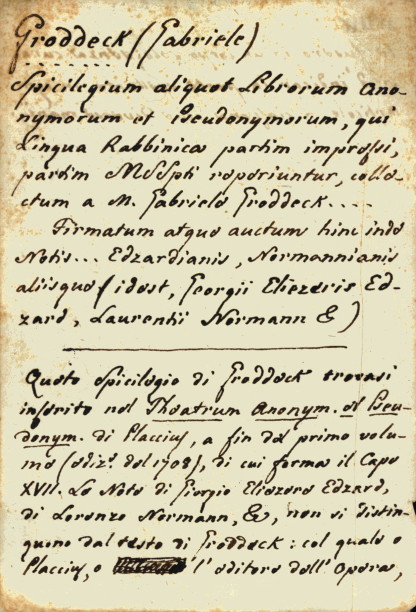 Groddeck (Gabriele)
Spicilegium aliquot Librorum ano-
nymorum et pseudonymorum, qui
Lingua Rabbinica partim impressi,
partim MSSpti reperiuntur, colle-
ctum a M. Gabriele Groddeck....
Firmatum atque auctum hinc inde
Notis... Edzardianis, Normannianis
aliisque (idest, Georgii Eliezeris Ed-
zard, Laurentii Normann &)
Questo spicilegio di Groddeck trovasi
inserito nel Theatrum Anonym. et Pseu-
donym. di Placcius, a fin del primo volu-
me (ediz.e del 1708), di cui forma il Capo
XVII. Le Note di Giorgio Eliezero Edzard,
di Lorenzo Normann, &, non si distin-
guono dal testo di Groddeck: col quale o
Placcius, o l'editore dell'Opera,